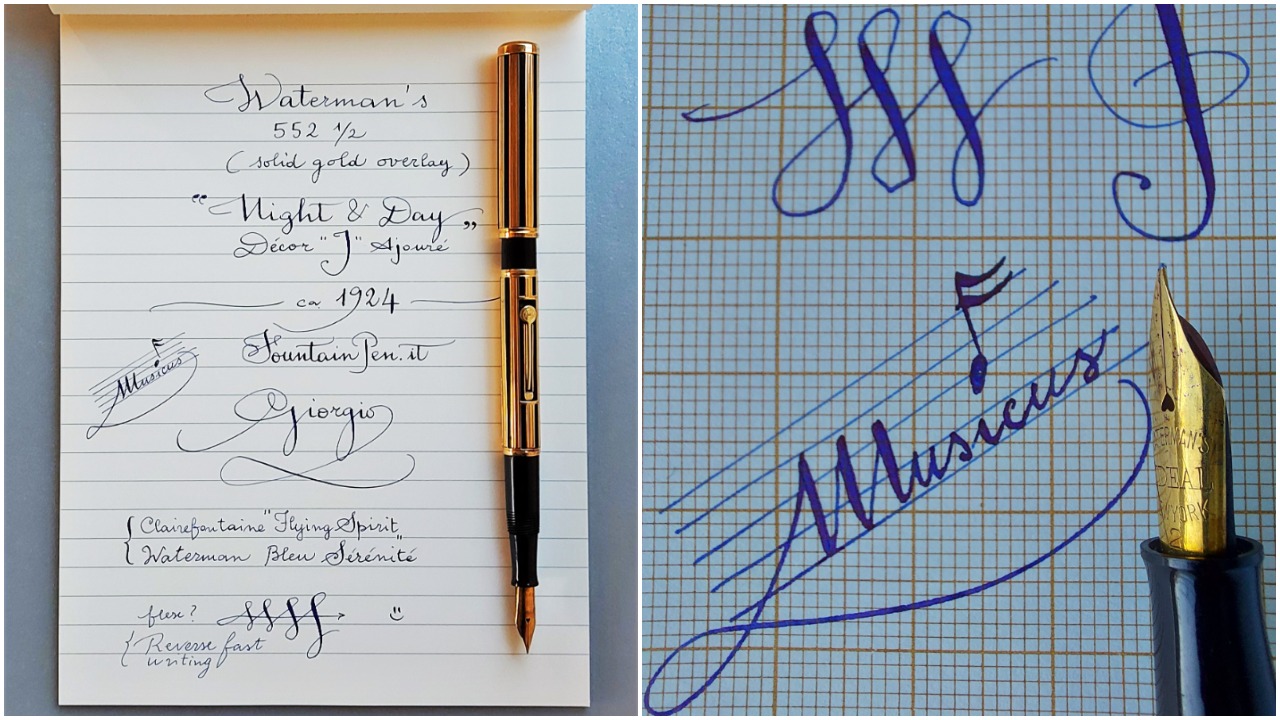 Waterman's
552 1/2
(solid gold overlay)
"Night & Day"
Décor "J" Ajouré
ca 1924
FountainPen.it
Musicus
Giorgio
{ Clairefontaine "Flying Spirit"
{ Waterman Bleu Sérénité
flex? ffff
{ Reverse fast
writing
fff f
Musicus
WATERMAN'S
IDEAL
NEW YORK
2